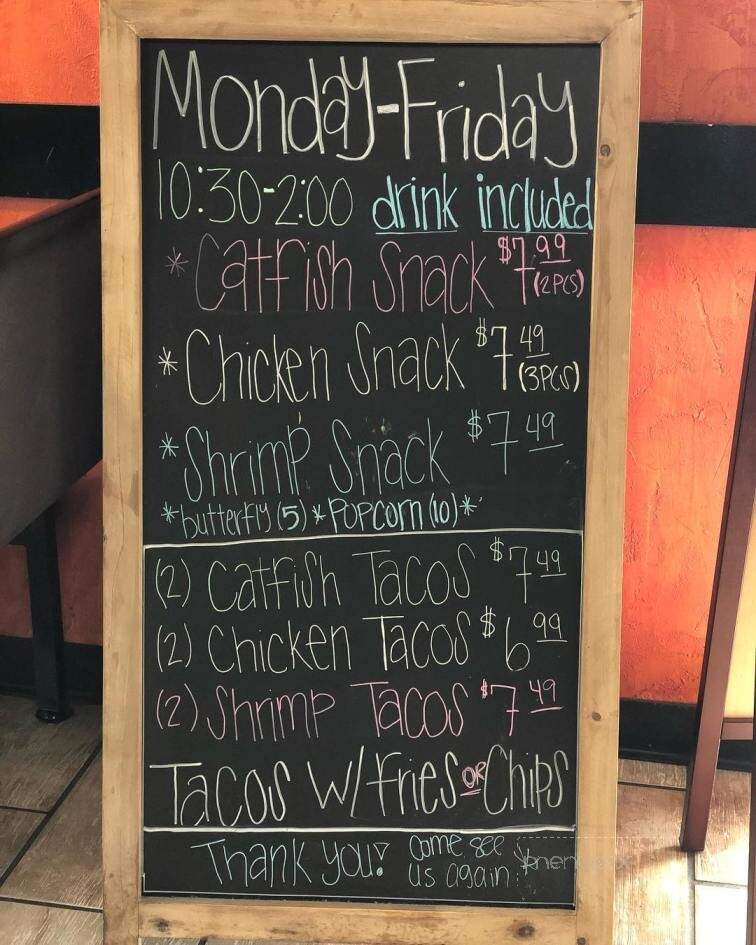 Monday-Friday
10:30-2:00 drink included
* Catfish Snack $7.99 (2PCS)
* Chicken Snack $7.49 (3PCS)
* Shrimp Snack $7.49
*butterfly (5) * Popcorn (10) *
(2) Catfish Tacos $7.49
(2) Chicken Tacos $6.99
(2) Shrimp Tacos $7.49
Tacos w/ fries OR Chips
Thank you! Come see
us again :)